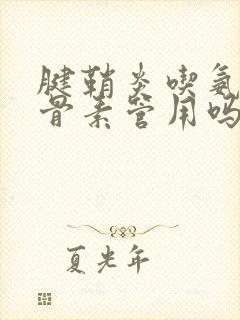 腱鞘炎喫氨
骨素管用吗
夏光年